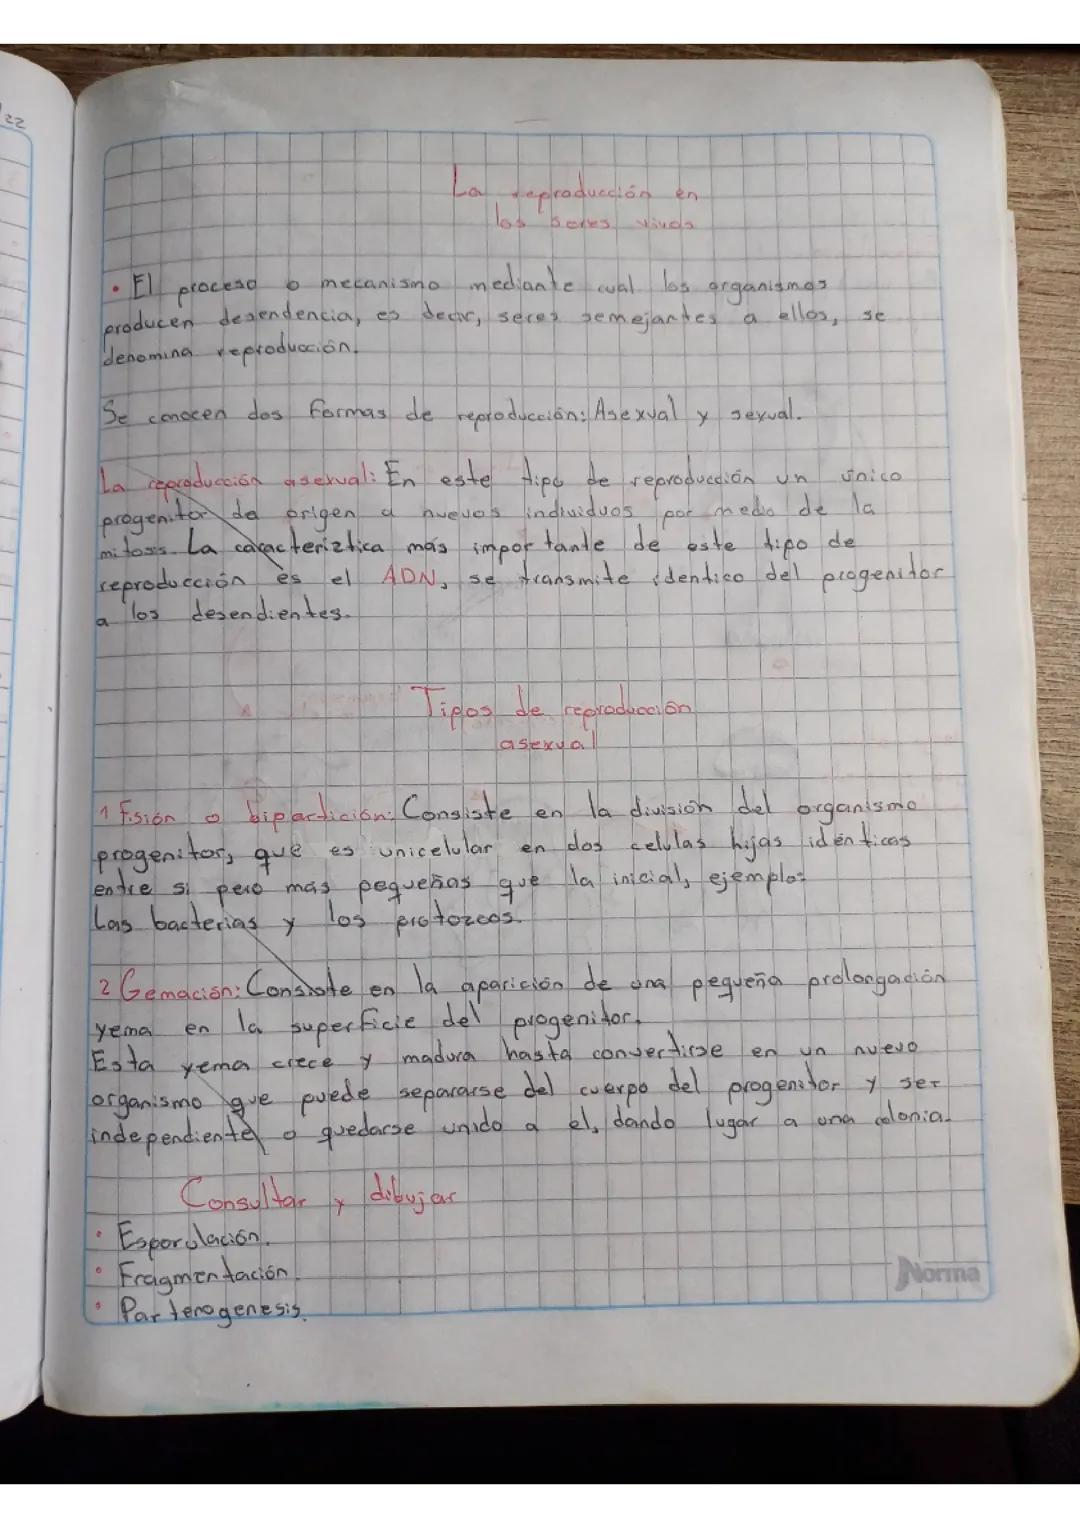 22
La reproducción en
los seres vivos
• El proceso o mecanismo mediante cual los organismos
producen desendencia, es decir, seres semejantes a ellos, se
denomina reproducción.
Se conocen dos formas de reproducción: Asexual y sexual.
La reproducción asexual: En este tipo de reproducción un único
progenitor da origen a nuevos individuos por medio de la
mitosis. La caracteriztica más importante de este tipo de
reproducción es el ADN, se transmite identico del progenitor
a los desendientes.
Tipos de reproducción
asexual
1 Fisión o bipartición: Consiste en la división del organismo
progenitor, que es unicelular en dos celulas hijas idénticas
entre si pero mas pequeñas que la inicial, ejemplo:
Las bacterias y los protozoos.
2 Gemación: Consiste en la aparición de una pequeña prolongación
yema en la superficie del progenitor.
Esta yema crece y madura hasta convertirse en un nuevo
organismo que puede separarse del cuerpo del progenitor y ser
independiente o quedarse unido a el, dando lugar a una colonia.
Consultar y dibujar
• Esporulación.
• Fragmentación.
• Partenogenesis.
Norma